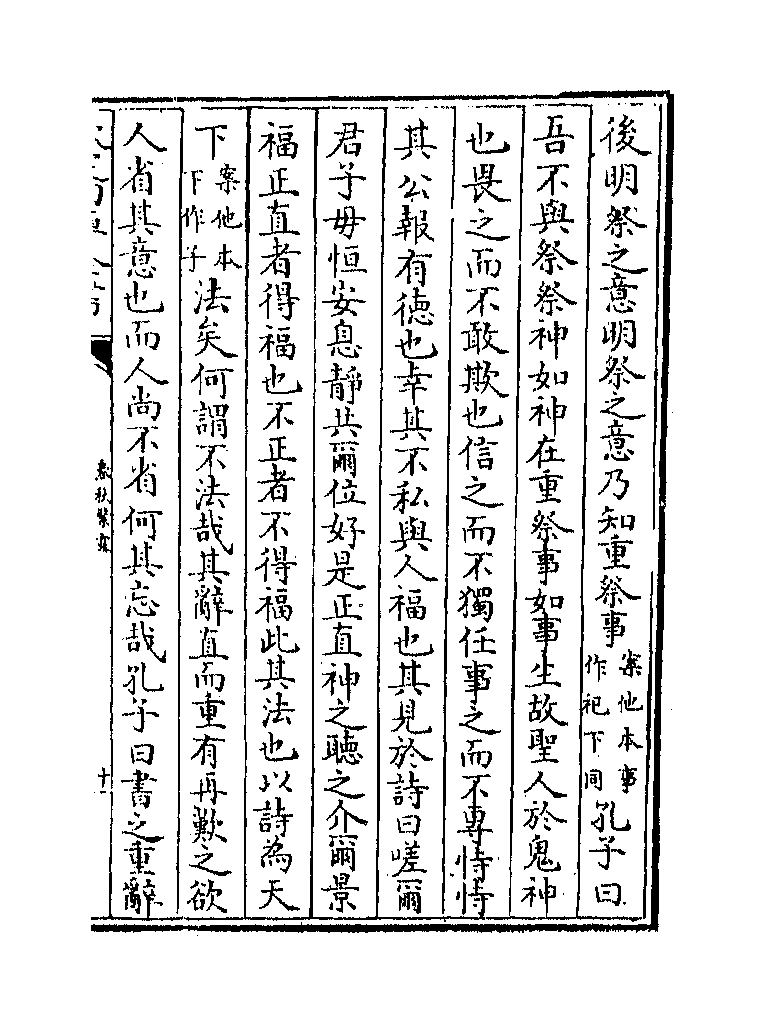 後明祭之意明祭之意乃知重祭事案他本事作祀下同孔子曰
吾不與祭祭神如神在重祭事如事生故聖人於鬼神
也畏之而不敢欺也信之而不獨任事之而不專恃恃
其公報有徳也幸其不私與人福也其見於詩曰嗟爾
君子毋恒安息靜共爾位好是正直神之聽之介爾景
福正直者得福也不正者不得福此其法也以詩為天
下案他本下作子法矣何謂不法哉其辭直而重有再歎之欲
人省其意也而人尚不省何其忘哉孔子曰書之重辭
春秋繁露
十一